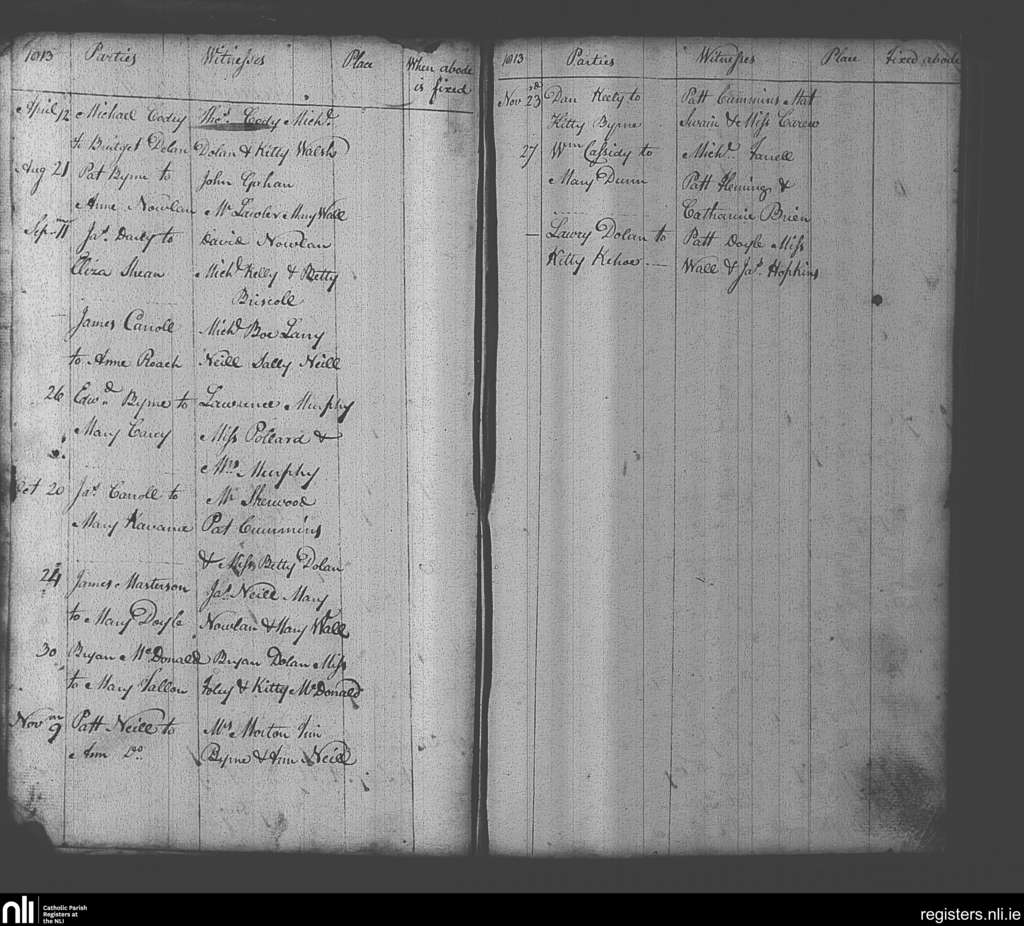 1813 Parties Witnesses Place When abode is fixed
April 12 Michael Codey Thos. Cody Michl.
to Bridget Dolan Dolan & Kitty Walsh
Aug 21 Pat Byrne to John Gahan
Anne Nowlan Mr Lawler Mary Wall
Sep 11 Jas. Daily to David Nowlan
Eliza Shean Michl Kelly & Betty
Briscoll
— James Carroll Michl Boe Larry
to Anne Roach Neill Sally Neill
26 Edwd Byrne to Lawrence Murphy
Mary Carey Miss Pollard &
Mrs Murphy
Oct 20 Jas. Carroll to Mr Sherwood
Mary Kavana Pat Cummins
& Miss Betty Dolan
24 James Masterson Jas. Neill Mary
to Mary Doyle Nowlan & Mary Wall
30 Bryan McDonald Bryan Dolan Miss
to Mary Fallon Foley & Kitty McDonald
Nov 9 Patt Neill to Mrs Morton Tim
Ann Do. Byrne & Ann Neill
1813 Parties Witnesses Place fixed abode
Nov 23rd Dan Keely to Patt Cummins Mat
Kitty Byrne Swain & Miss Carew
27 Wm Cassidy to Michl. Farrell
Mary Dunn Patt Fleming &
Catharine Brien
— Lawry Dolan to Patt Doyle Miss
Kitty Kehoe Wall & Jas. Hopkins
nli
Catholic Parish
Registers at
the NLI
registers.nli.ie